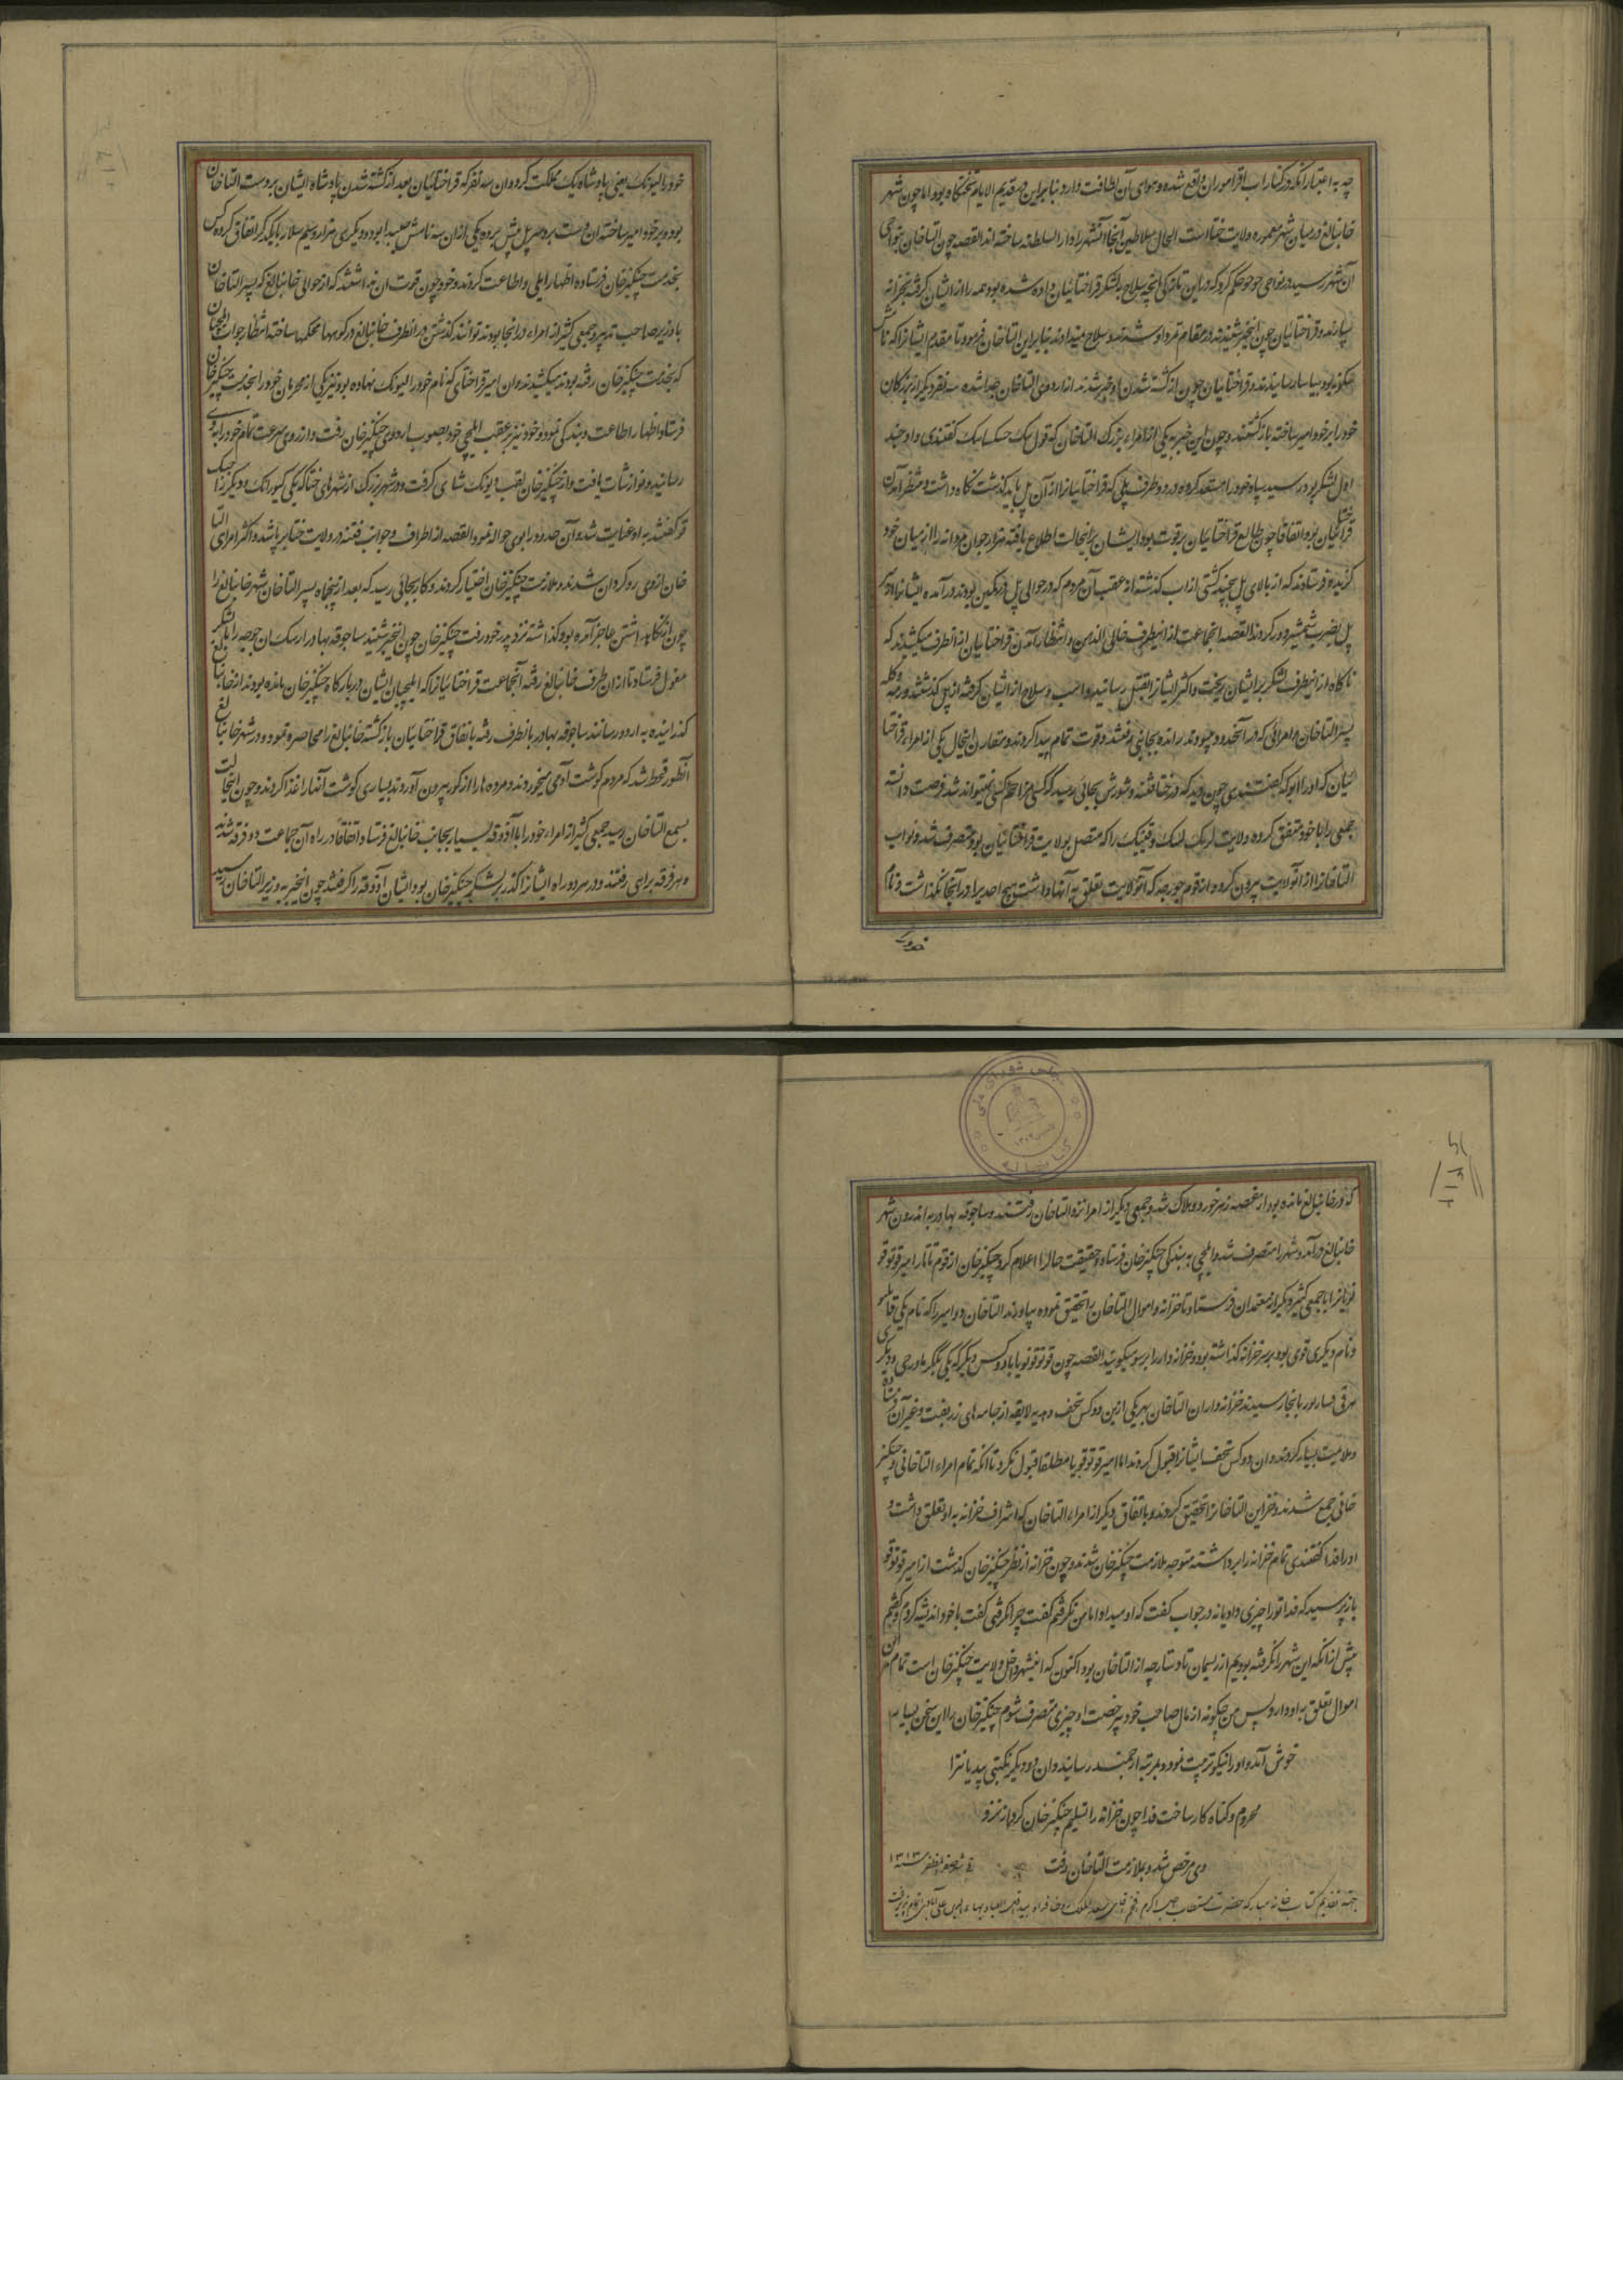 چه به اعتبار آنکه در کنار آب اقراموران واقع شده و هوای آن لطافت دارد و بنابراین در قدیم الایام تختگاه بود اما چون شهر
خانبالغ در میان شهر معموره ولایت ختا است الحال سلاطین آنجا آنشهر را دار السلطنه ساخته اند القصه چون التاخان بنواحی
آن شهر رسید در نواحی جوجو حکم کرد که در این تازگی آنچه سلاح بلشکر قراختائیان داده شده بود همه را از ایشان گرفته بخزانه
سپارند و قراختائیان چون اینخبر شنیدند در مقام تمرد او شدند و سلاح نمیدادند بنابراین التاخان فرمود تا مقدم ایشانرا که
بیاسا رسانیدند و قراختائیان چون از کشته شدن او خبر شدند از اردوی التاخان جدا شده سه نفر دیگر از بزرگان
خود را بر خود امیر ساخته باز گشتند و چون این خبر به یکی از امراء بزرگ التاخان که گفتندی و او چند
اول لشکر بود رسید سپاه خود را مستعد کرده در دو طرف پلی که قراختائیانرا از آن پل باید گذشت نگاه داشت و منتظر آمدن
قراختائیان بود اتفاقا چون طالع قراختائیان بر قوت بود ایشان بر اینحالت اطلاع یافته هزار جوان مردانه را از میان خود
گزیده فرستادند که از بالای پل بچند کشتی از آب گذشته از عقب آن مردم که در حوالی پل در کمین بودند در آمده ایشانرا از سر
پل بضرب شمشیر دور کردند القصه آنجماعت از اینطرف خالی الذهن در انتظار آمدن قراختائیان از آنطرف میکشیدند که
ناگاه از اینطرف لشکر بر ایشان ریخت و اکثر ایشانرا بقتل رسانیده و اسب و سلاح از ایشان گرفته از پل گذشتند و رمه و گله
پسر التاخان و امرائی که در آنحدود بودند رانده بجانبی رفتند و قوت تمام پیدا کردند و مقارن اینحال یکی از امراء قراختا
ئیان که او را گفتندی چون دید که در ختا فتنه و شورش بجائی رسید که کسی مزاحم کسی نمیتواند شد فرصت دانسته
جمعی را با خود متفق کرده ولایت را که متصل بولایت قراختائیان بود متصرف شد و نواب
التاخانرا از آنولایت بیرون کرده و از قوم جورجه که آنولایت تعلق به آنها داشت هیچ احدیرا در آنجا نگذاشت و نام
خود را
خود را لیونک یعنی پادشاه یک مملکت کرد و آن سه نفر که قراختائیان بعد از کشته شدن پادشاه ایشان بر دست التاخان
بود و بر خود امیر ساخته
بخدمت چنگیز خان فرستاده اظهار ایلی و اطاعت کردند و خود چون قوت آن نداشتند که از حوالی خانبالغ که پسر التاخان
با وزیر صاحب تدبیر و جمعی کثیر از امراء در آنجا بودند توانند گذشتن در آنطرف خانبالغ در کوهها محکمها ساخته انتظار جواب ایلچیان
که بخدمت چنگیز خان رفته بودند میکشیدند و آن امیر قراختای که نام خود را لیونک نهاده بود نیز یکی از محرمان خود را بخدمت چنگیز خان
فرستاد اظهار اطاعت و بندگی نمود و خود نیز بر عقب ایلچی خود بصوب اردوی چنگیز خان رفت و از روی سرعت تمام خود را بوی
رسانید و نوازشات یافت و از چنگیز خان لقب گرفت و دو شهر بزرگ از شهرهای ختا که یکی و دیگر را
گفتند به او عنایت شد و آن حدود را بوی حواله نمود القصه از اطراف و جوانب فتنه در ولایت ختا بر پا شد و اکثر امرای التا
خان از وی رو گردان شدند و ملازمت چنگیز خان اختیار کردند و کار بجائی رسید که بعد از پنجماه پسر التاخان شهر خانبالغ را
چون از نگاهداشتن عاجز آمده بود گذاشته نزد پدر خود رفت چنگیز خان چون اینخبر شنید ساجوقه بهادر را با لشکر
مغول فرستاد تا از آن طرف خانبالغ رفته آنجماعت قراختائیانرا که ایلچیان ایشان در بارگاه چنگیز خان مانده بودند از خانبالغ
گذرانیده به اردو رسانند ساجوقه بهادر بانطرف رفته باتفاق قراختائیان باز گشته خانبالغ را محاصره نمود و در شهر خانبالغ
آنطور قحط شد که مردم گوشت آدمی میخوردند و مرده ها را از گور بیرون آوردند بسیاری گوشت آنها را غذا کردند و چون اینحالت
بسمع التاخان رسید جمعی کثیر از امراء خود را با آذوقه بسیار بجانب خانبالغ فرستاد اتفاقا در راه آن جماعت دو فرقه شدند
و هر فرقه براهی رفتند و در هر دو راه ایشانرا گذر بر لشکر چنگیز خان بود ایشان آذوقه را گرفتند چون اینخبر به وزیر التاخان رسید
که در خانبالغ مانده بود از غصه زهر خورد و هلاک شد و جمعی دیگر از امرا نزد التاخان رفتند و ساجوقه بهادر به اندرون شهر
خانبالغ در آمد و شهر را متصرف شد و ایلچی به بندگی چنگیز خان فرستاده حقیقت حال را اعلام کرد چنگیز خان از قوم تاتار امیر قوتوقو
نویانرا با جمعی کثیر دیگر از معتمدان فرستاد تا خزانه و اموال التاخان را تحقیق نموده بیاورند التاخان دو امیر را که نام یکی
و نام دیگری قوی بود بر سر خزانه گذاشته بود و خزانه دار را میگویند القصه چون قوتوقو نویان با دو کس دیگر که یکی و دیگری
بانجا رسیدند خزانه داران التاخان بهر یکی ازین دو کس تحف و هدیه لایقه از جامه های زربفت و غیر آن
و ملامیت بسیار کردند و آن دو کس تحف ایشانرا قبول کردند اما امیر قوتوقو یا مطلقا قبول نکرد تا آنکه تمام امراء التاخانی و چنگیز
خانی جمع شدند و خزاین التاخانرا تحقیق کردند و باتفاق دیگر از امراء التاخان که اشراف خزانه به او تعلق داشت و
او را فدا گفتندی تمام خزانه را برداشته متوجه ملازمت چنگیز خان شدند و چون خزانه از نظر چنگیز خان گذشت از امیر قوتوقو
باز پرسید که فدا تو را چیزی داد یا نه در جواب گفت که او میداد اما من نگرفتم گفت چرا نگرفتی گفت با خود اندیشه کردم و گفتم
پیش از آنکه این شهر را نگرفته بودیم از ریسمان تا دستارچه از التاخان بود اکنون که اینشهر داخل ولایت چنگیز خان است تمام این
اموال تعلق به او دارد پس من چگونه از مال صاحب خود بیرخصت او چیزی متصرف شوم چنگیز خان را این سخن بسیار
خوش آمد و او را نیکو تربیت نمود و بمرتبه ارجمند رسانید و آن دو دیگر
محروم و گناه کار ساخت فدا چون خزانه را تسلیم چنگیز خان کرد از نزد
وی مرخص شد و بملازمت التاخان رفت
فی شهر صفر المظفر سنه ۱۳۱۳
جهته تقدیم کتاب خانه مبارکه حضرت مستطاب
کتابخانه
مجلس شورای ملی